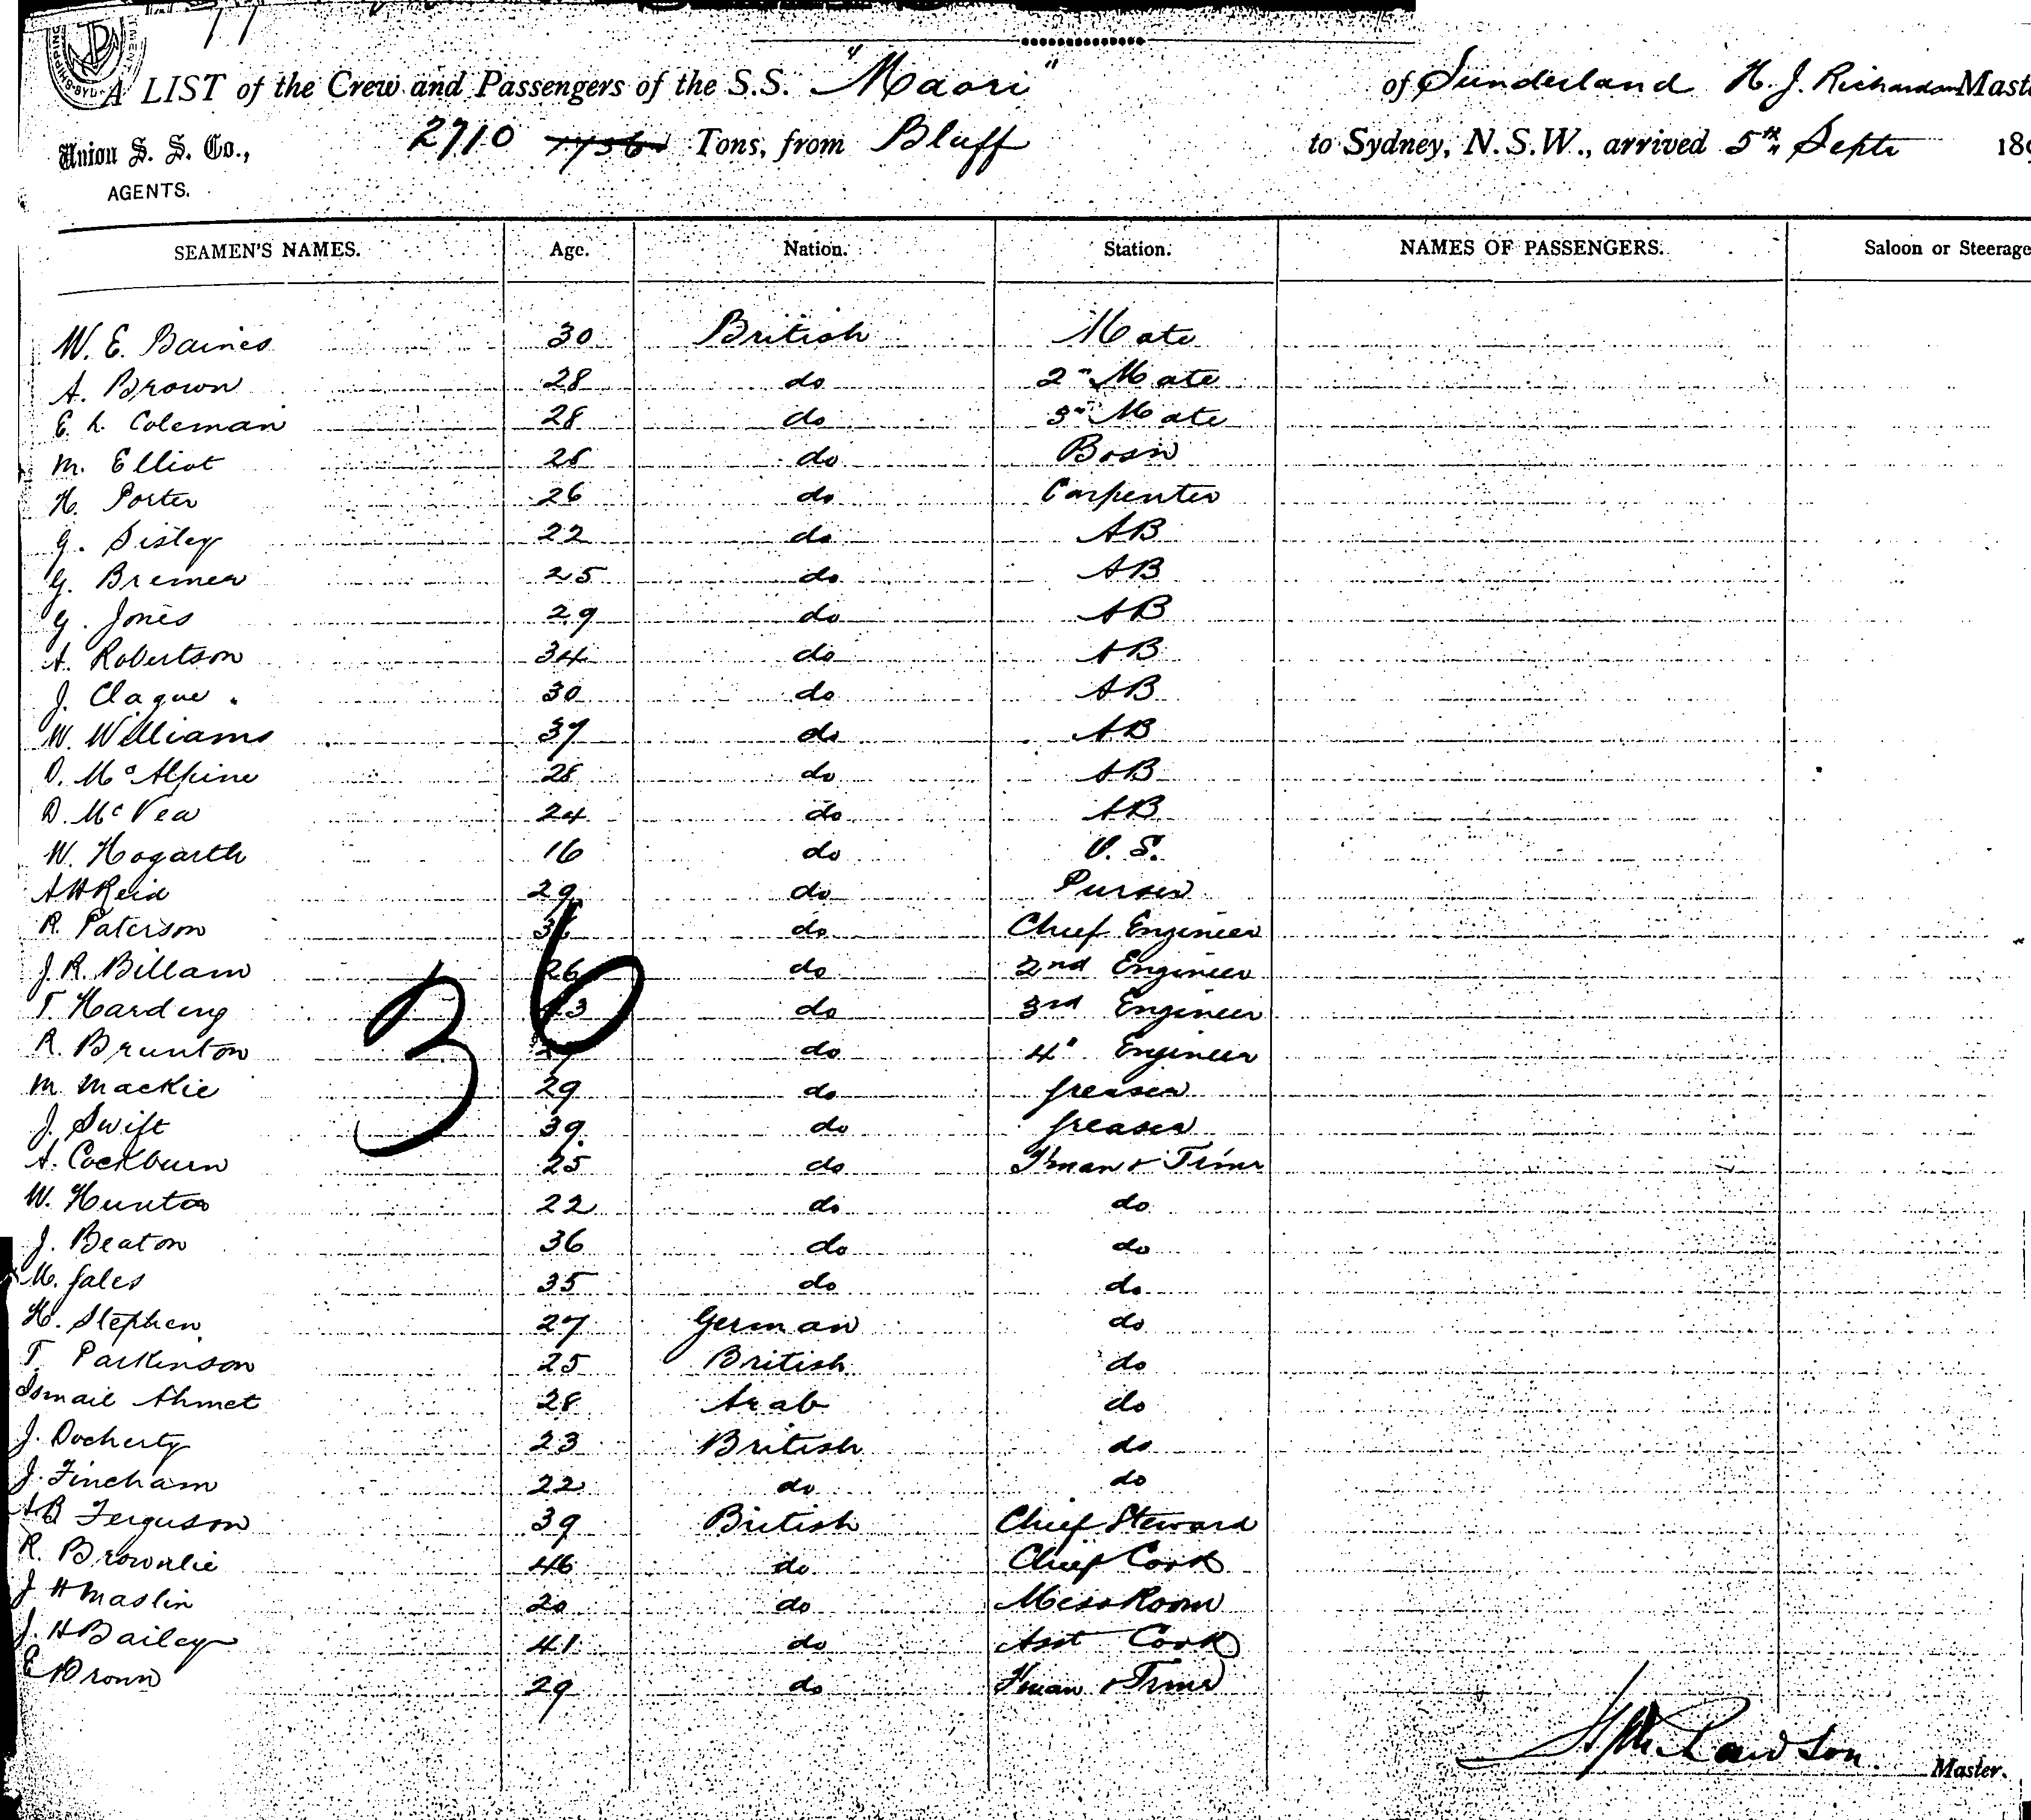 77
A LIST of the Crew and Passengers of the S.S. "Maori" of Sunderland H. J. Richardson Maste
Union S. S. Co., 2710 1756 Tons, from Bluff to Sydney, N.S.W., arrived 5th Septr 189
AGENTS.
SEAMEN'S NAMES. Age. Nation. Station. NAMES OF PASSENGERS. Saloon or Steerage
W. E. Baines 30 British Mate
A. Brown 28 do 2nd Mate
E. L. Coleman 28 do 3rd Mate
M. Elliot 28 do Bosn
H. Porter 26 do Carpenter
G. Sisley 22 do AB
G. Bremer 25 do AB
G. Jones 29 do AB
A. Robertson 34 do AB
J. Clague 30 do AB
W. Williams 37 do AB
D. McAlpine 28 do AB
D. McVea 24 do AB
W. Hogarth 16 do O. S.
A H Reid 29 do Purser
R. Paterson do Chief Engineer
J. R. Billam 26 do 2nd Engineer
T Harding 43 do 3rd Engineer
R. Brunton do 4" Engineer
M Mackie 29 do Greaser
J. Swift 39 do Greaser
A. Cockburn 25 do Fman & Trimr
W. Hunter 22 do do
J. Beaton 36 do do
M. Gales 35 do do
H. Stephen 27 German do
T. Parkinson 25 British do
Ismail Ahmet 28 Arab do
J. Docherty 23 British do
J. Fincham 22 do do
A B Ferguson 39 British Chief Steward
R. Brownlie 46 do Chief Cook
J H Maslin 20 do Mess Room
J. H Bailey 41 do Asst Cook
E Brown 29 do Fman & Trimr
36
Master.